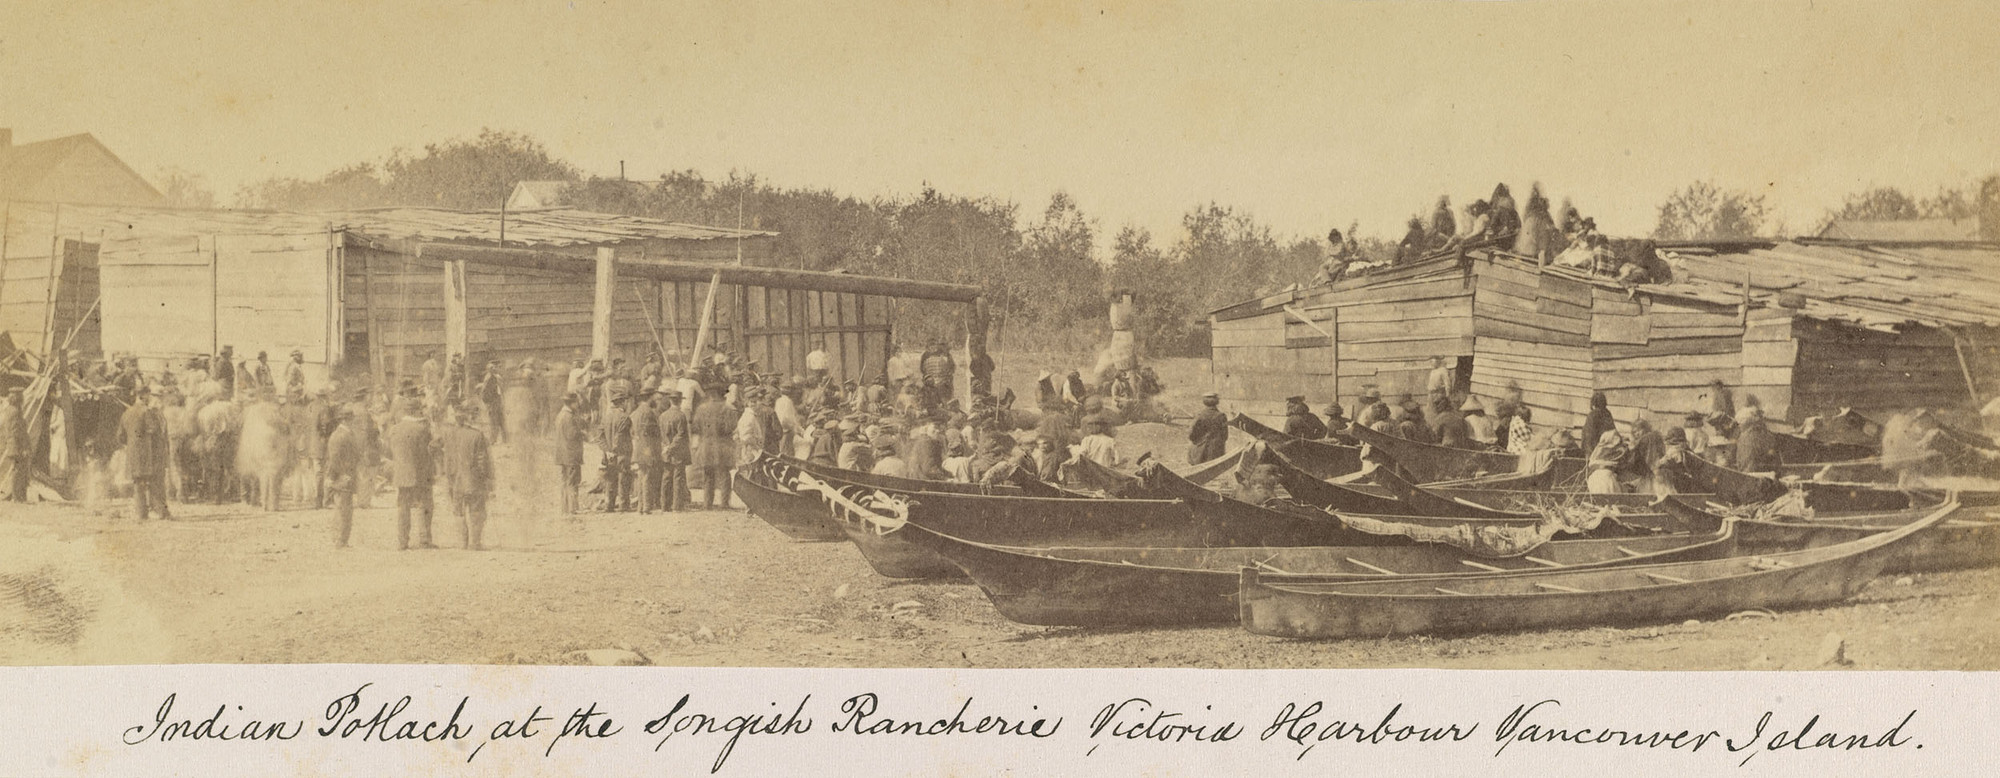 Indian Potlach, at the Songish Rancherie Victoria Harbour Vancouver Island.